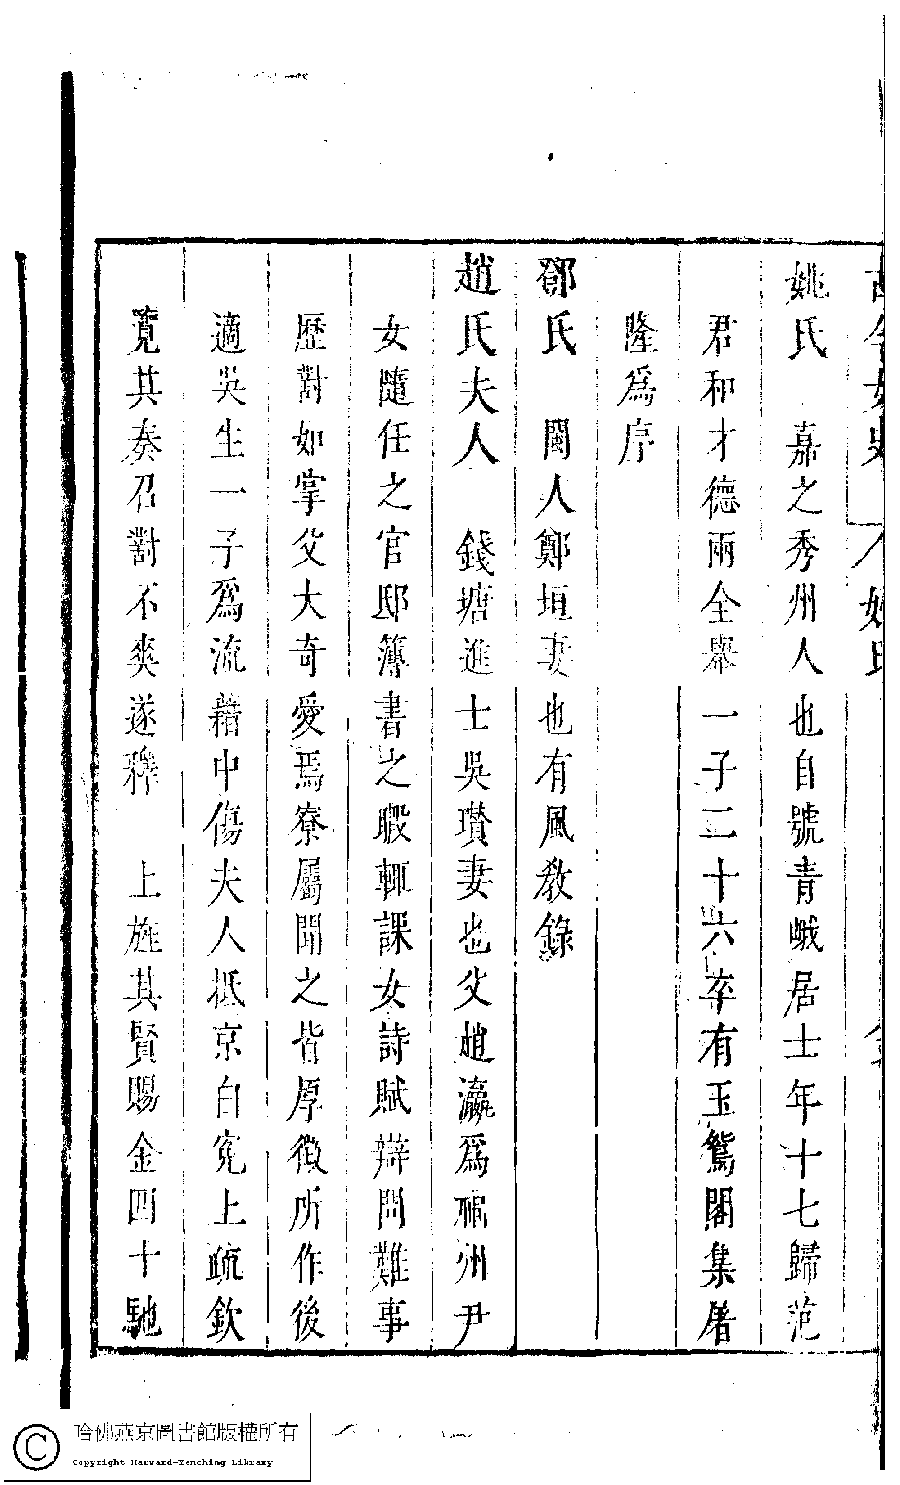 古今女史
姚氏
姚氏 嘉之秀州人也自號青峨居士年十七歸范
君和才德兩全舉一子二十六卒有玉鴛閣集屠
隆爲序
鄧氏 閩人鄭垣妻也有風教錄
趙氏夫人 錢塘進士吳瓚妻也父趙瀛爲福州尹
女隨任之官邸簿書之暇輒課女詩賦辯問難事
歷對如掌父大奇愛焉寮屬聞之皆厚徵所作後
適吳生一子爲流藉中傷夫人抵京白寃上疏欽
覽其奏召對不爽遂釋 上旌其賢賜金四十馳
哈佛燕京圖書館版權所有
Copyright Harvard-Yenching Library